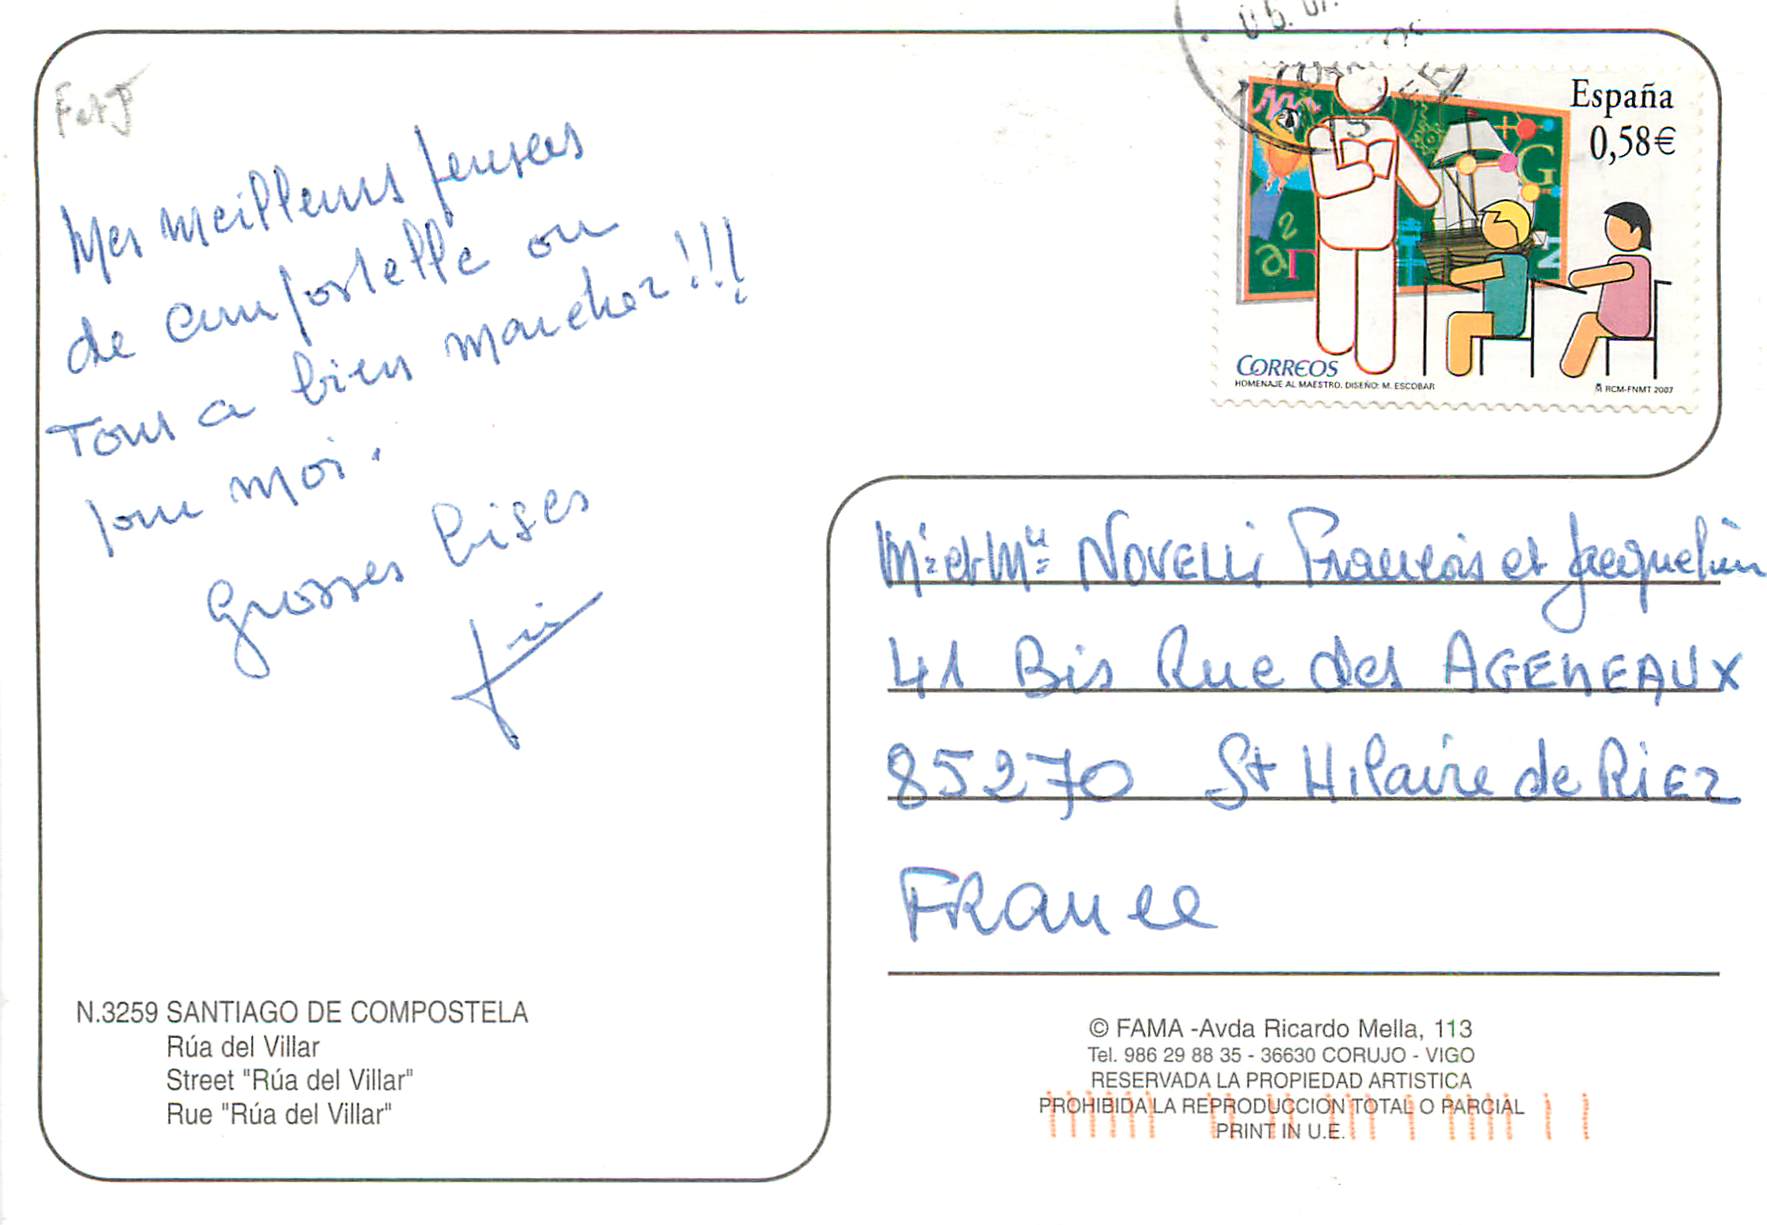 F et J
Mes meilleurs pensees
de compostelle ou
Tous a bien marcher!!!
pour moi.
Grosses bises
España
0,58€
CORREOS
HOMENAJE AL MAESTRO. DISEÑO: M. ESCOBAR
RCM-FNMT 2007
Mr et Mme NOVELLI François et Jacqueline
41 Bis Rue des AGENEAUX
85270 St Hilaire de Riez
FRANCE
N.3259 SANTIAGO DE COMPOSTELA
Rúa del Villar
Street "Rúa del Villar"
Rue "Rúa del Villar"
© FAMA -Avda Ricardo Mella, 113
Tel. 986 29 88 35 - 36630 CORUJO - VIGO
RESERVADA LA PROPIEDAD ARTISTICA
PROHIBIDA LA REPRODUCCION TOTAL O PARCIAL
PRINT IN U.E.